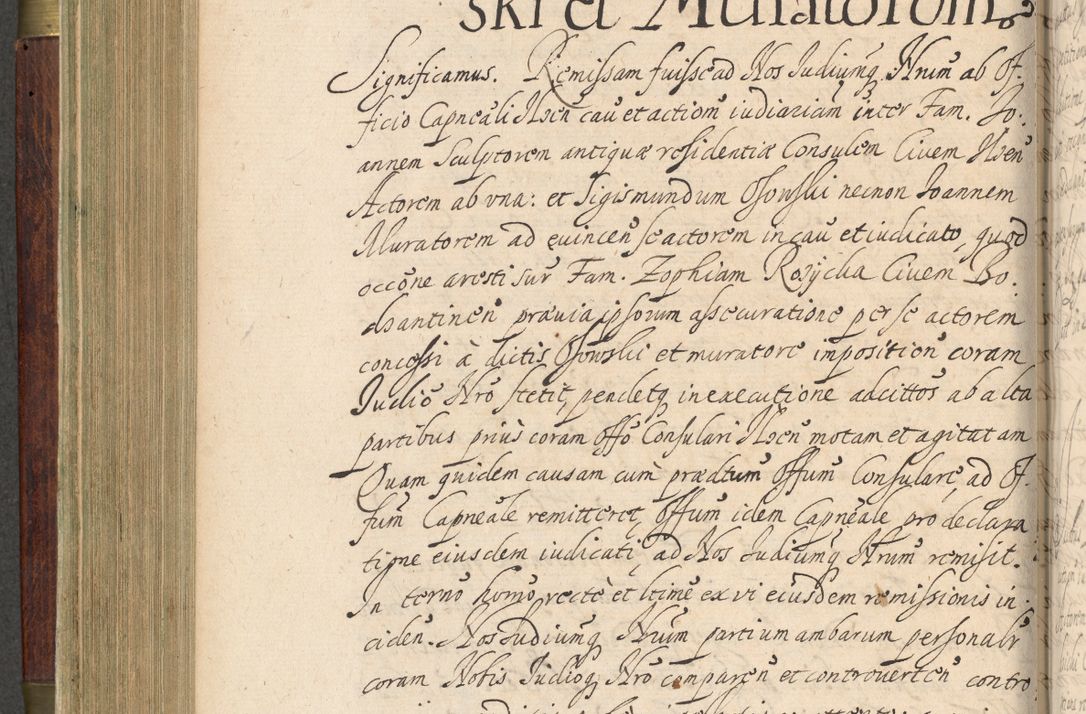 ski et Muratorem
Significamus. Remissam fuisse ad Nos Iudiumq̃ Nrum ab Of-
ficio Capneali Ilcen̄ cau et actiom iudiariam inter Fam. Jo-
annem Sculptorem antiquæ residentiæ Consulem Civem Ilcen̄
Actorem ab vna: et Sigismundum Osowski necnon Joannem
Muratorem ad evincen̄ se actorem in cau et iudicato, quod
occōne aresti sur Fam. Zophiam Rozycka Civem Bo-
chantinen̄ prævia ipsorum assecuratione per se actorem
concessi à dictis Osowski et muratore imposition̄ coram
Iudiō Nrō stetit, pendetq̃ in executione adcittos ab alta
partibus priùs coram Offō Consulari Ilcen̄ motam et agitatam
Quam quidem causam cum prædtum Offum Consulare, ad Of-
fum Capneāle remitteret, Offum idem Capneāle pro declara
tione eiusdem iudicati, ad Nos Iudiumq̃ Nrum remisit.
In termō hōmō rectè et ltime ex vi eiusdem remissionis in-
ciden̄. Nos Iudiumq̃ Nrum partium ambarum personalr
coram Nobis Iudioq̃ Nrō comparen̄ et controverten̄ contro